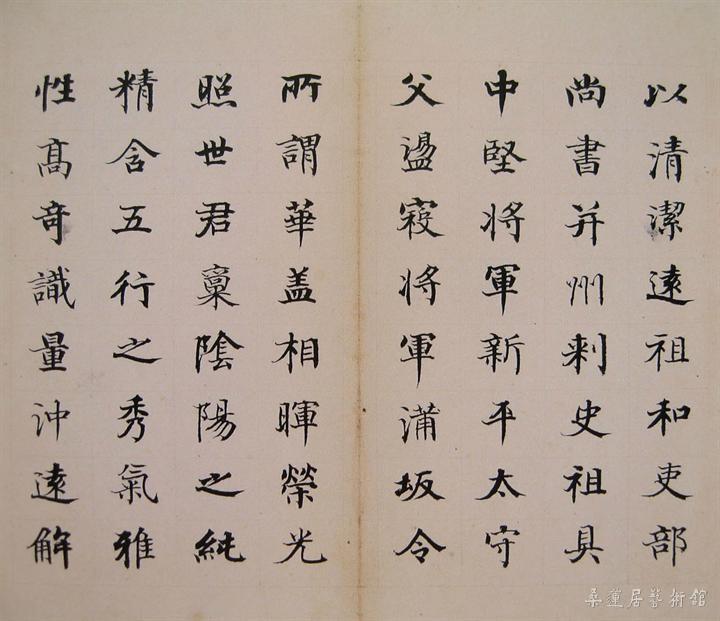 以清潔遠祖和吏部
尚書并州刺史祖具
中堅将軍新平太守
父盪寇将軍蒲坂令
所謂華盖相暉榮光
照世君稟陰陽之純
精含五行之秀氣雅
性高奇識量沖遠解
桑蓮居藝術館